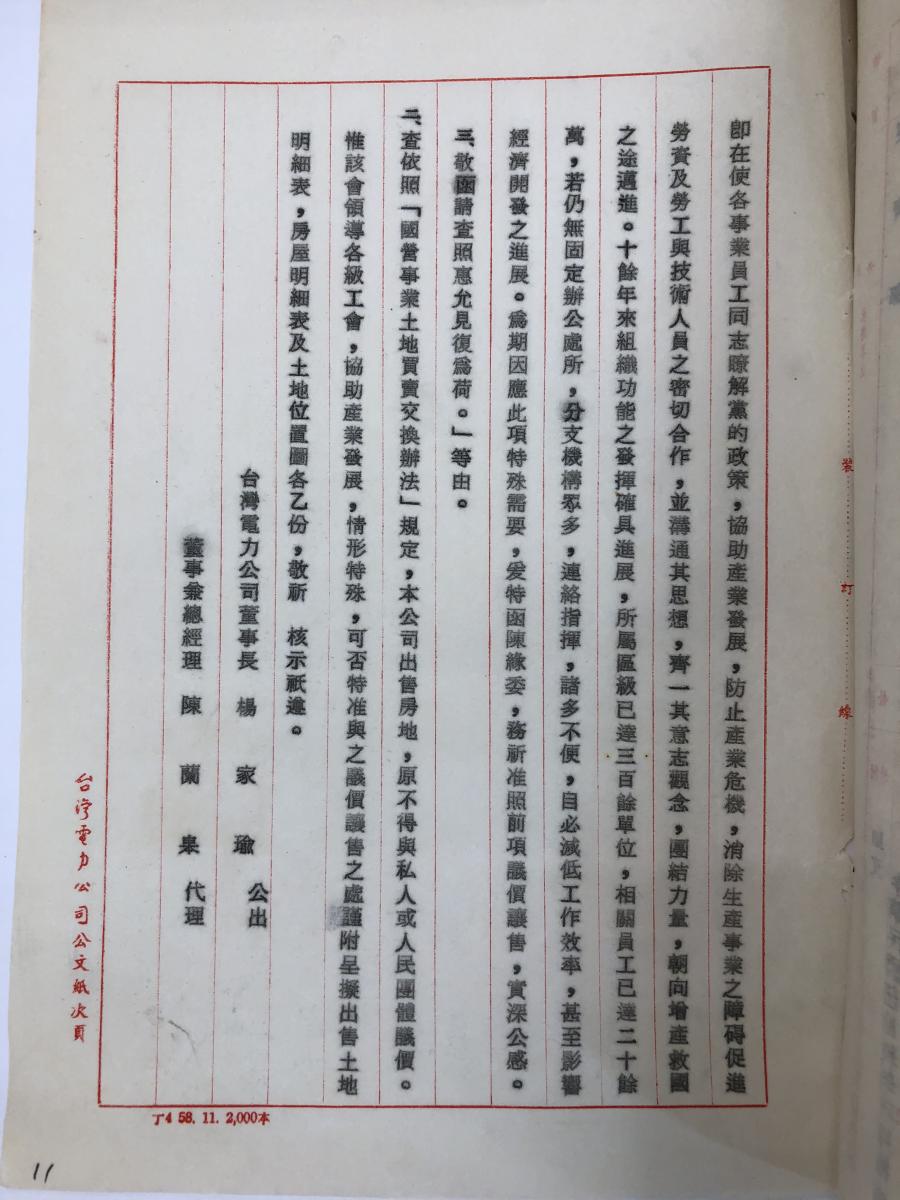 即在使各事業員工同志瞭解黨的政策，協助產業發展，防止產業危機，消除生產事業之障碍促進
勞資及勞工與技術人員之密切合作，並溝通其思想，齊一其意志觀念，團結力量，朝向增產救國
之途邁進。十餘年來組織功能之發揮確具進展，所屬區級已達三百餘單位，相關員工已達二十餘
萬，若仍無固定辦公處所，分支機構眾多，連絡指揮，諸多不便，自必減低工作效率，甚至影響
經濟開發之進展。為期因應此項特殊需要，爰特函陳緣委，務祈准照前項議價讓售，實深公感。
三、敬函請查照惠允見復為荷。」等由。
二、查依照「國營事業土地買賣交換辦法」規定，本公司出售房地，原不得與私人或人民團體議價。
惟該會領導各級工會，協助產業發展，情形特殊，可否特准與之議價讓售之處謹附呈擬出售土地
明細表，房屋明細表及土地位置圖各乙份，敬祈　核示祇遵。
台灣電力公司董事長　楊　家　瑜　公出
董事兼總經理　陳　蘭　皋　代理
台灣電力公司公文紙次頁
丁4 58. 11. 2,000本
裝　訂　線
11